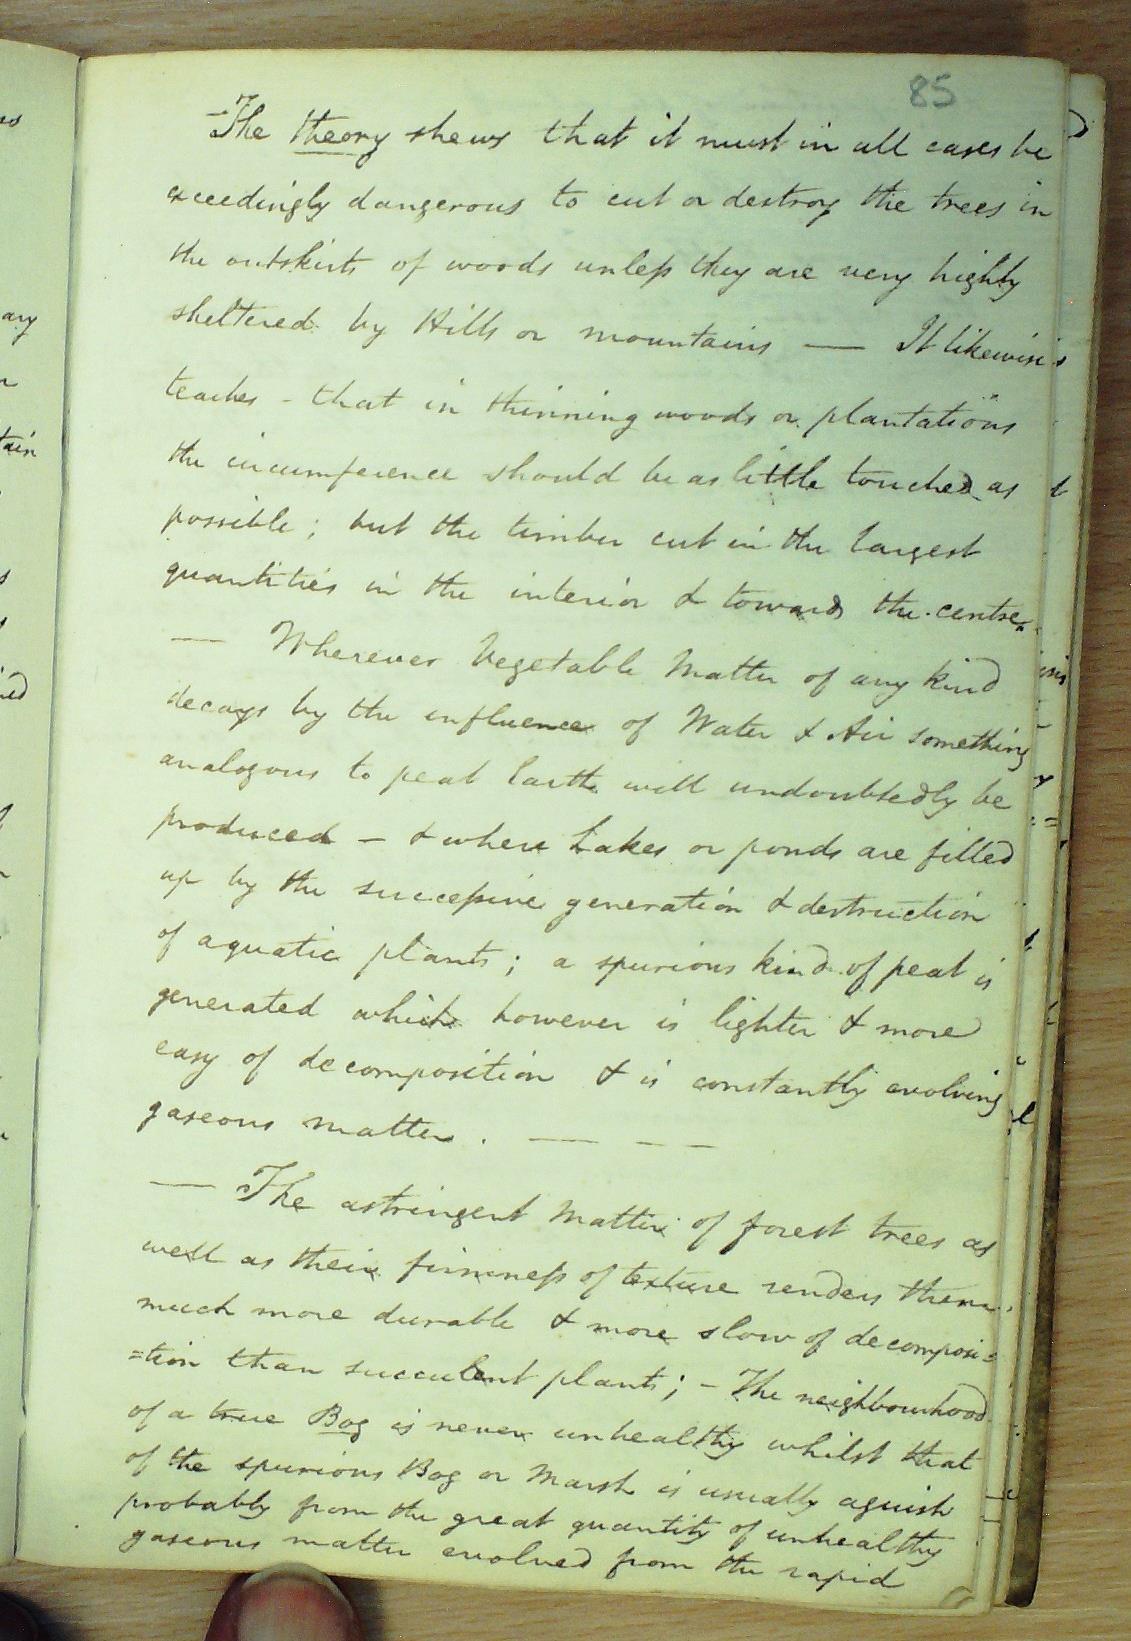 85
The theory shews that it must in all cases be
exceedingly dangerous to cut or destroy the trees in
the outskirts of woods unless they are very highly
sheltered by Hills or mountains — It likewise
teaches - that in thinning woods or plantations
the circumference should be as little touched as
possible; but the timber cut in the largest
quantities in the interior & towards the centre.
— Wherever Vegetable Matter of any kind
decays by the influence of Water & Air something
analogous to peat Earth will undoubtedly be
produced – & where Lakes or ponds are filled
up by the successive generation & destruction
of aquatic plants; a spurious kind of peat is
generated which however is lighter & more
easy of decomposition & is constantly evolving
gaseous matter. — — —
— The astringent Matter of forest trees as
well as their firmness of texture renders them
much more durable & more slow of decomposi=
=tion than succulent plants; – The neighbourhood
of a true Bog is never unhealthy whilst that
of the spurious Bog or Marsh is usually aguish
probably from the great quantity of unhealthy
gaseous matter evolved from the rapid